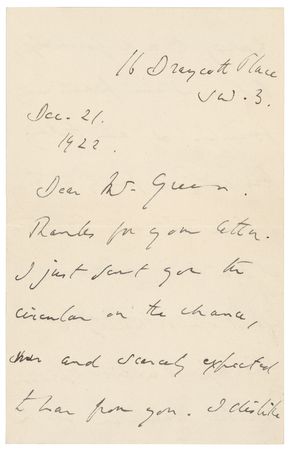 16 Draycott Place
S.W. 3.
Dec. 21.
1922.
Dear Mr Green.
Thanks for your letter.
I just sent you the
circular on the chance,
and scarcely expected
to hear from you. I dislike